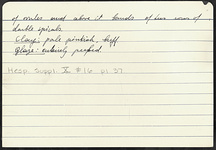 of ovules and above it bands of two rows of
double spirals.
Clay: pale pinkish, buff
Glaze: entirely peeled.
Hesp. Suppl. X #16 pl 37